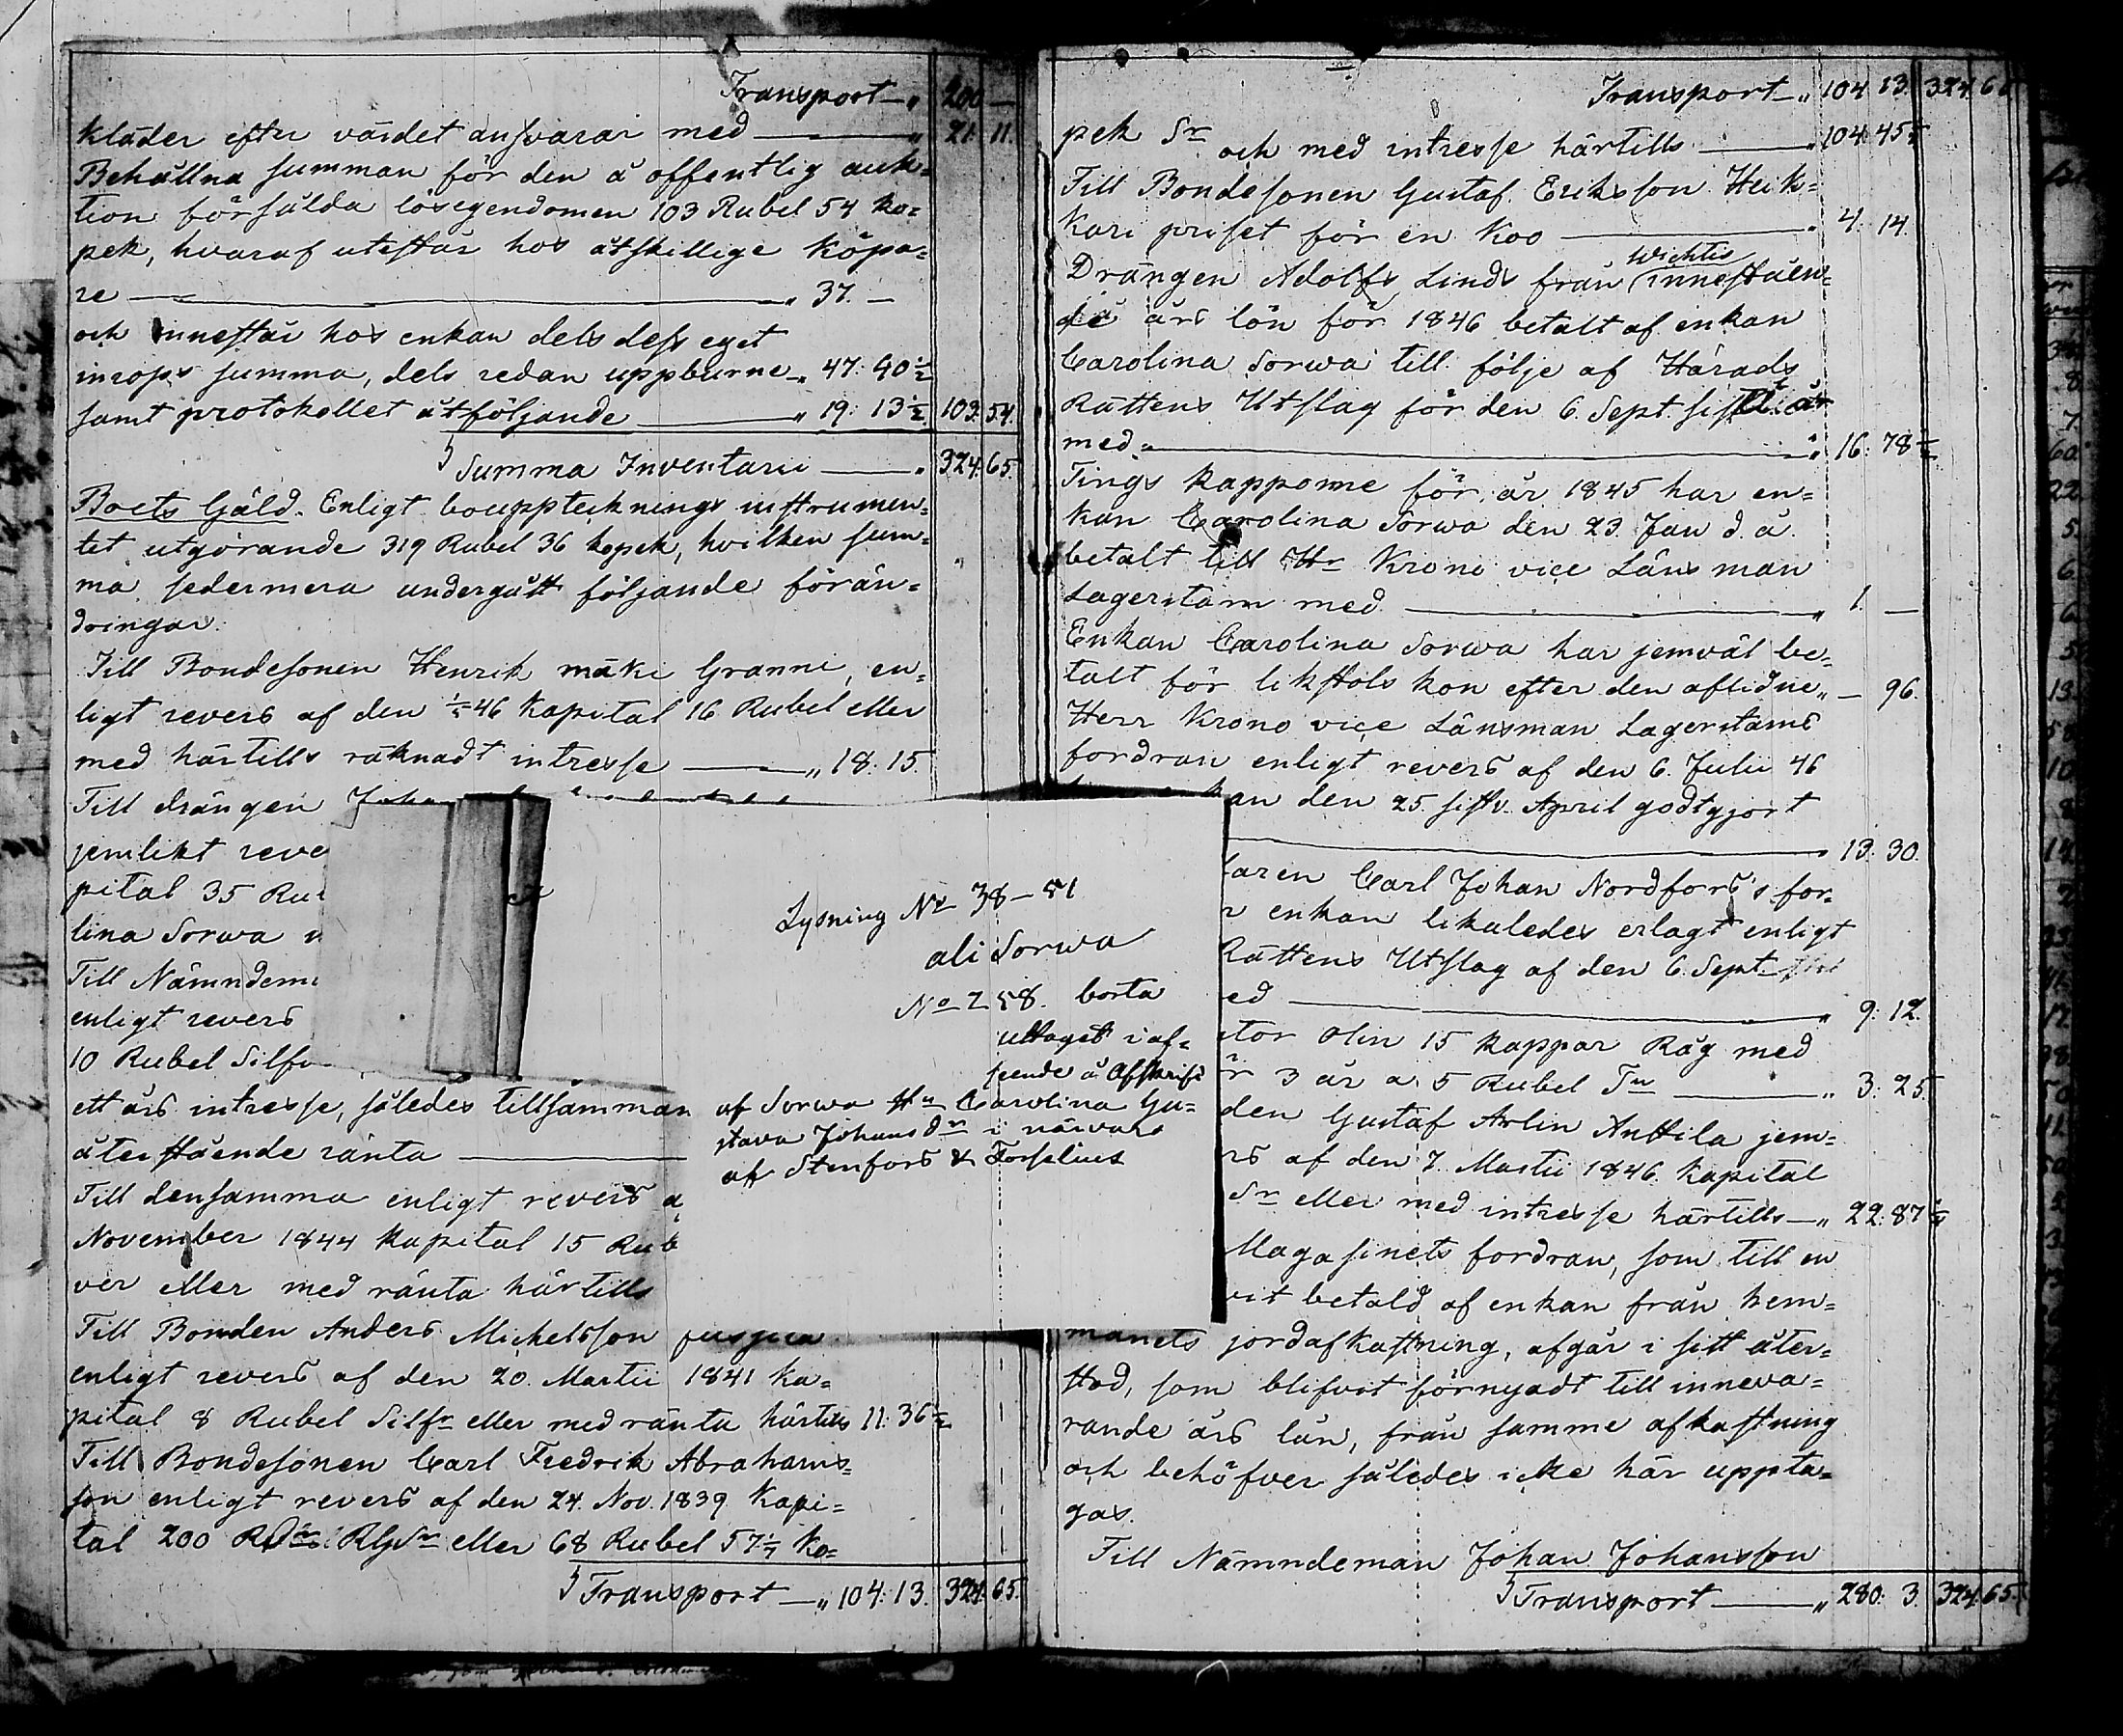 Transport — „ 200 —
kläder efter värdet ansvarar med — „ 21. 11.
Behållna summan för den å offentlig auk=
tion försålda lösegendomen 103 Rubel 54 ko=
pek, hvaraf utestår hos åtskillige köpa=
re — „ 37. —
och innestår hos enkan dels dess eget
inrops summa, dels redan uppburne „ 47. 40½
samt protokollet åtföljande — „ 19: 13½ 103. 54.
Summa Inventarii — „ 324. 65.
Boets Gäld. Enligt bouppteknings instrumen=
tet utgörande 319 Rubel 36 kopek, hvilken sum=
ma sedermera undergått följande förän=
dringar:
Till Bondesonen Henrik mäki Granni, en=
ligt revers af den 46 kapital 16 Rubel eller
med härtills räknadt intresse — „ 18. 15.
Till drängen Joha
jemlikt reve
pital 35 Ru
lina Sorwa
Till Nämndem
enligt revers
10 Rubel Silfv
ett års intresse, således tillsamman
återstående ränta —
Till densamma enligt revers a
November 1844 kapital 15 Rub
ver eller med ränta härtills
Till Bonden Anders Michelsson
enligt revers af den 20. Martii 1841 ka=
pital 8 Rubel Silfr eller med ränta härtills 11: 36½
Till Bondesonen Carl Fredrik Abrahams=
son enligt revers af den 24. Nov. 1839 kapi=
tal 200 Rdr RgSr eller 68 Rubel 57 1/7 ko=
Transport — „ 104: 13. 324. 65.
Lysning No 38 — 51
ali Sorwa
No 258. borta
uttaget i af=
seende å Afskrift
af Sorwa Hn Carolina Gu=
stava Johansdr i närvaro
af Stenfors & Forselius
Transport — „ 104. 13. 324. 65
pek Sr och med intresse härtills — „ 104: 45
Till Bondesonen Gustaf Eriksson Heik=
kari priset för en Koo — „ 4. 14.
Wichtis
Drängen Adolfs Linds från innestäen=
de års lön för 1846 betalt af enkan
Carolina Sorwa till följe af Härads
Rättens Utslag för den 6. Sept. sistl. år
med — „ 16: 78
Tings kapporne för år 1845 har en=
kan Carolina Sorwa den 23 Jan d. å.
betalt till Hr Krono vice Länsman
Lagerstam med — „ 1. —
Enkan Carolina Sorwa har jemväl be=
talt för likstols kon efter den aflidne „ — 96.
Herr Krono vice Länsman Lagerstams
fordran enligt revers af den 6. Julii 46
kan den 25 sistv. April godtgjort
— „ 13. 30.
aren Carl Johan Nordfors's for=
r enkan likaledes erlagt enligt
Rättens Utslag af den 6. Sept.
ed — „ 9: 12.
tor Olin 15 kappar Råg med
r 3 år a 5 Rubel Tn — „ 3: 25.
den Gustaf Arlin Anttila jem=
rs af den 7. Martii 1846. kapital
Sr eller med intresse härtills — „ 22: 87
Magasinets fordran, som till en
vit betald af enkan från hem=
manets jordafkastning, afgår i sitt åter=
stod, som blifvit förnyadt till inneva=
rande års lån, från samme afkastning
och behöfver således icke här uppta=
gas.
Till Nämndeman Johan Johansson
Transport — „ 280: 3. 324. 65.